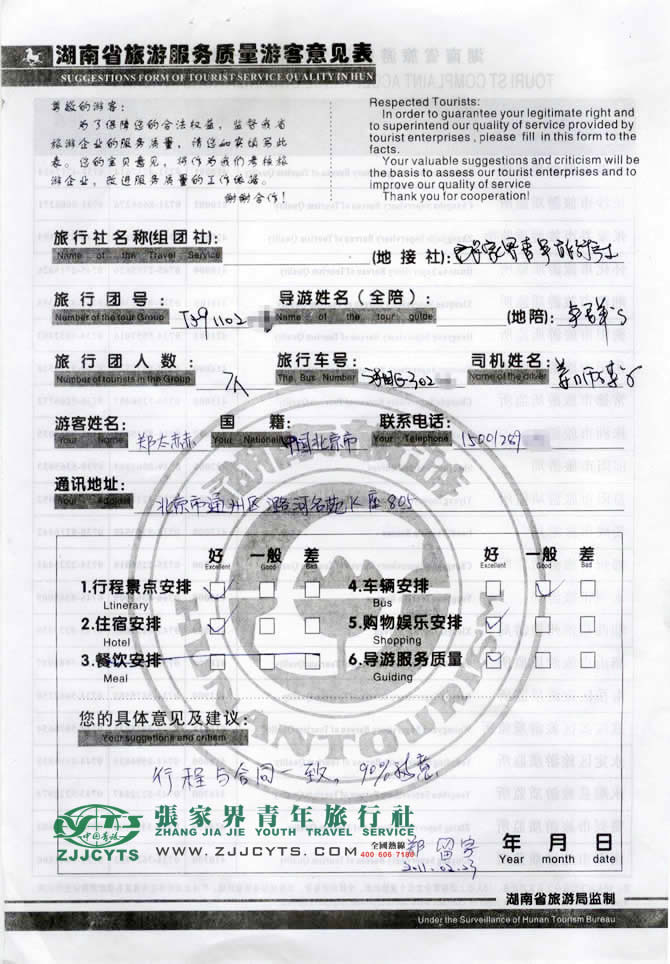 湖南省旅游服务质量游客意见表
SUGGESTIONS FORM OF TOURIST SERVICE QUALITY IN HUN
尊敬的游客:
为了保障您的合法权益,监督我省
旅游企业的服务质量,请您如实填写此
表。您的宝贝意见,将作为我们考核旅
游企业,改进服务质量的工作依据。
谢谢合作!
Respected Tourists:
In order to guarantee your legitimate right and
to superintend our quality of service provided by
tourist enterprises , please fill in this form to the
facts.
Your valuable suggestions and criticism will be
the basis to assess our tourist enterprises and to
improve our quality of service
Thank you for cooperation!
旅行社名称(组团社):
Name of the Travel Service
(地接社):张家界青年旅行社
旅行团号: TJ91102
Number of the tour Group
导游姓名(全陪):
Name of the tour guide
(地陪):
旅行团人数: 7人
Number of tourists in the Group
旅行车号:
The Bus Number
司机姓名:
Name of the driver
游客姓名: 郑太赫
Your Name
国籍: 中国北京市
Your Nationality
联系电话: 15001269
Your Telephone
通讯地址: 北京市通州区潞河名苑K座805
Your Address
好 一般 差 好 一般 差
Excellent Good Bad Excellent Good Bad
1.行程景点安排
Ltinerary
4.车辆安排
Bus
2.住宿安排
Hotel
5.购物娱乐安排
Shopping
3.餐饮安排
Meal
6.导游服务质量
Guiding
HUNAN TOURISM
您的具体意见及建议:
Your suggetions and critism
行程与合同一致。90%满意。
中国青旅
ZJJCYTS
張家界青年旅行社
ZHANG JIA JIE YOUTH TRAVEL SERVICE
WWW.ZJJCYTS.COM
全国热線
400 606 7180
2011.02.23
年 月 日
Year month date
湖南省旅游局监制
Under the Surveillance of Hunan Tourism Bureau